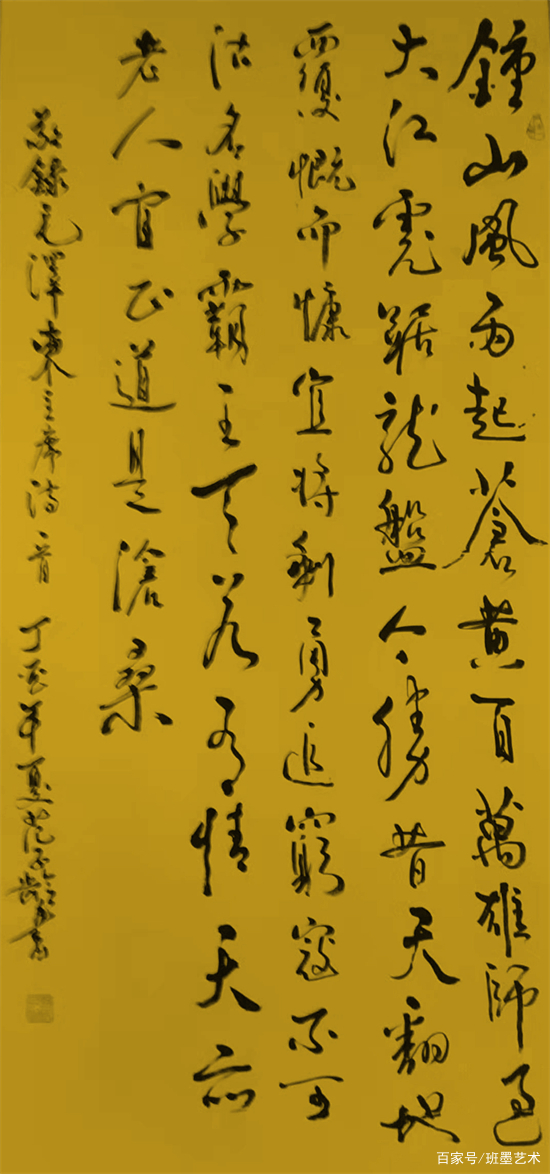 鍾山風雨起蒼黄百萬雄師過
大江虎踞龍盤今勝昔天翻地
覆慨而慷宜將剩勇追窮寇不可
沽名學霸王天若有情天亦
老人間正道是滄桑
敬錄毛澤東主席詩一首 丁 年夏 書
百家号/班墨艺术